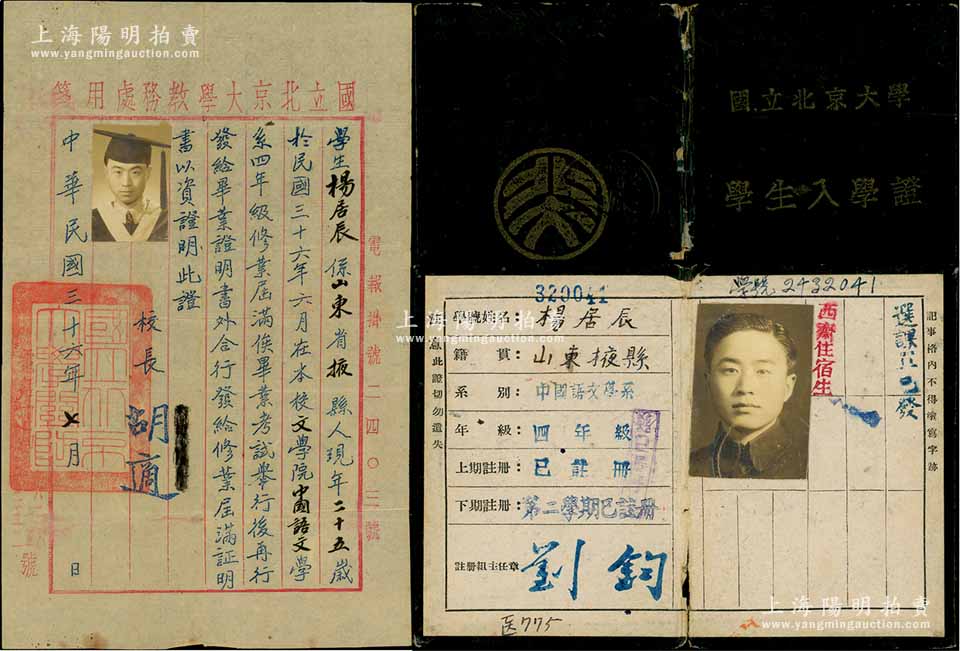 上海陽明拍賣
www.yangmingauction.com
國立北京大學教務處用箋
學生楊居辰係山東省掖縣人現年二十五歲
於民國三十六年六月在本校文學院中國語文學
系四年級修業屆滿俟畢業考試舉行後再行
發給畢業證明書外合行發給修業屆滿証明
書以資證明此證
校長
胡適
中華民國三十六年 月 日
電報掛號一四〇三號
號
國立北京大學
學生入學證
上海陽明拍賣
www.yangmingauction.com
320041
學號姓名：楊居辰
籍貫：山東掖縣
系別：中國語文學系
年級：四年級
上期註册：已註册
下期註册：第二學期已註册
註册組主任章
劉鈞
此證切勿遺失
医775
學號2432041
西齋住宿生
選課 已發
記事格內不得填寫字跡
上海陽明拍賣
www.yangmingauction.com